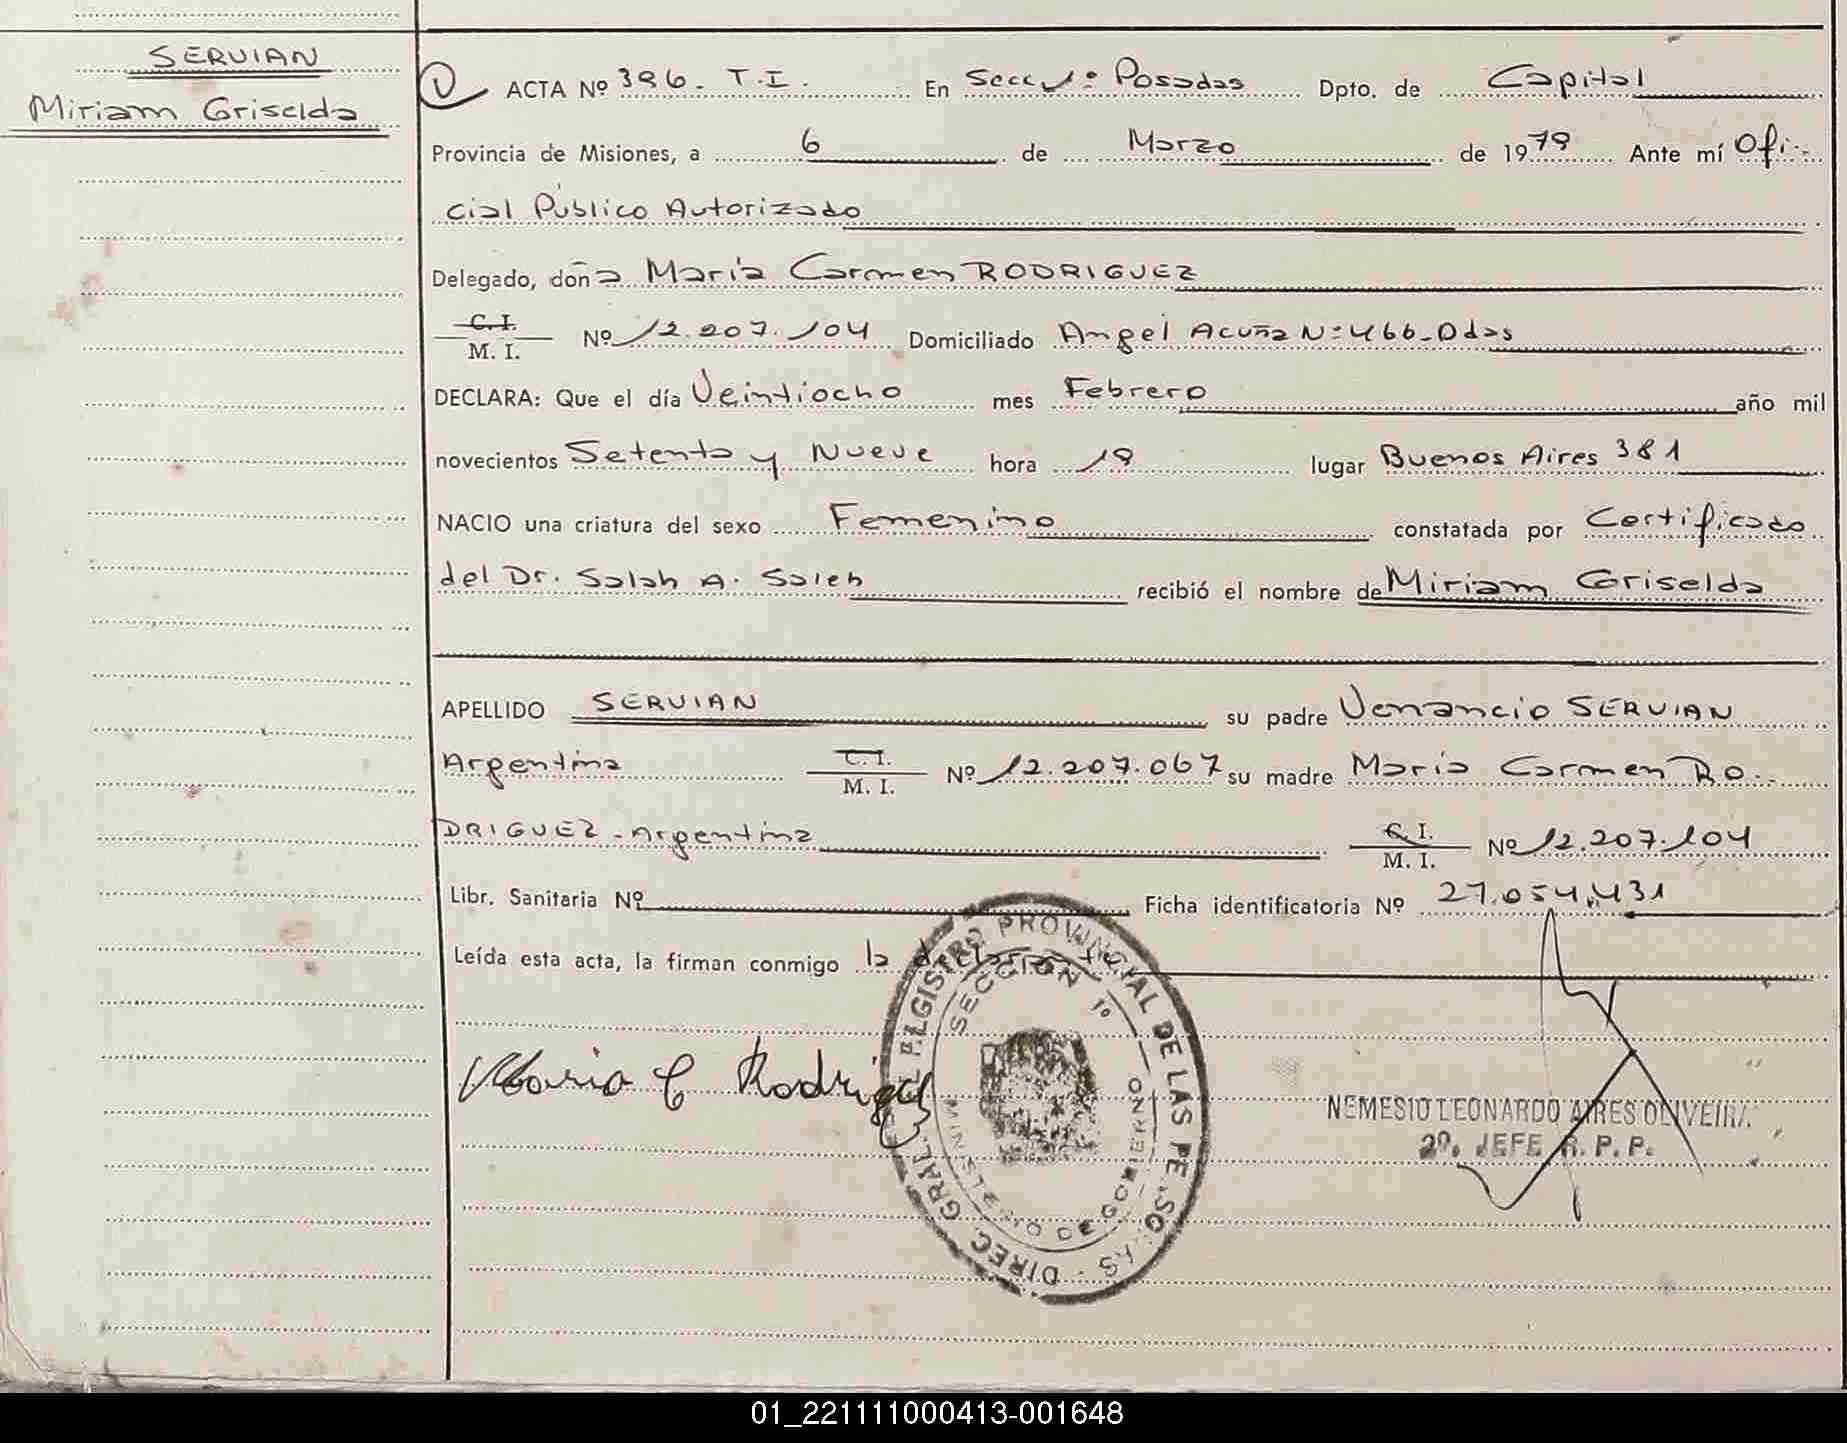 SERVIAN
Miriam Griselda
V ACTA Nº 396. T.I. En Secc 1º Posadas Dpto. de Capital
Provincia de Misiones, a 6 de Marzo de 1979 Ante mí Ofi-
cial Público Autorizado
Delegado, doña María Carmen RODRIGUEZ
C. I.
M. I. Nº 12.207.104 Domiciliado Angel Acuña Nº 466-Pdas
DECLARA: Que el día Veintiocho mes Febrero año mil
novecientos Setenta y Nueve hora 19 lugar Buenos Aires 381
NACIO una criatura del sexo Femenino constatada por Certificado
del Dr. Salah A. Saleh recibió el nombre de Miriam Griselda
APELLIDO SERVIAN su padre Venancio SERVIAN
Argentina C. I. M. I. Nº 12.207.067 su madre María Carmen RO-
DRIGUEZ - Argentina C. I. M. I. Nº 12.207.104
Libr. Sanitaria Nº Ficha identificatoria Nº 27.054.431
Leída esta acta, la firman conmigo la declarante
DIREC. GRAL. DEL REGISTRO PROVINCIAL DE LAS PERSONAS
SECCION 1º
MINISTERIO DE GOBIERNO
Maria C Rodriguez
NEMESIO LEONARDO AIRES OLIVEIRA
2º. JEFE R. P. P.
01_221111000413-001648